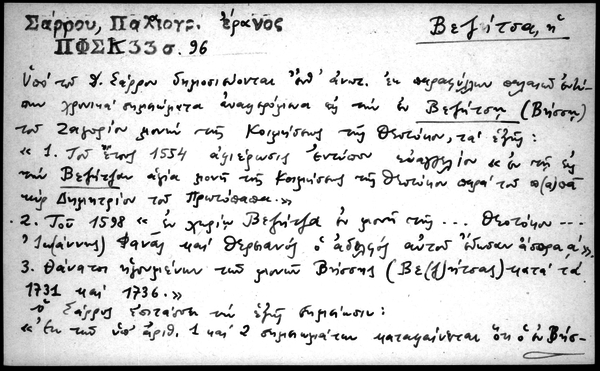 Σάρρου, Παλιογρ. ἔρανος
ΠΦΣΚ 33 σ. 96
Βεζίτσα, ἡ
Ὑπὸ τοῦ Δ. Σάρρου δημοσιεύονται ἔνθ' ἀνωτ. ἐκ παραφύλλων παλαιῶν ἐντύ-
πων χρονικὰ σημειώματα ἀναφερόμενα εἰς τὴν ἐν Βεζήτσῃ (Βήσσῃ)
τοῦ Ζαγορίου μονὴν τῆς Κοιμήσεως τῆς Θεοτόκου, τὰ ἑξῆς:
« 1. Τοῦ ἔτους 1554 ἀφιέρωσις ἐντύπου εὐαγγελίου « ἐν τῇ εἰς
τὴν Βεζίτζαν ἁγία μονῇ τῆς Κοιμήσεως τῆς Θεοτόκου παρὰ τοῦ π(α)πᾶ
κὺρ Δημητρίου τοῦ Πρωτόπαπα.»
2. Τοῦ 1598 « ἐν χωρίῳ Βεζήτζα ἐν μονῇ τῆς ... Θεοτόκου ---
Ἰω(άννης) Φανᾶς καὶ Θερμιανὸς ὁ ἀδελφὸς αὐτοῦ ἔδωσαν ἄσπρα, α΄».
3. Θάνατοι ἡγουμένων τῆς μονῆς Βήσσης (Βε(ζ)ήτσας) κατὰ τὰ
1731 καὶ 1736.»
ὁ Σάρρος ἐπιτάσσει τὴν ἑξῆς σημείωσιν:
« Ἐκ τῶν ὑπ' ἀριθ. 1 καὶ 2 σημειωμάτων καταφαίνεται ὅτι ὁ ἐν Βήσ-